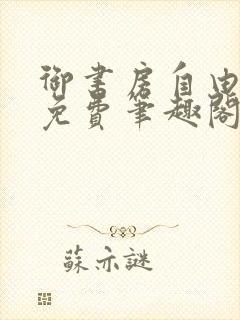 御書房自由
免費筆趣閣
蘇亦謎